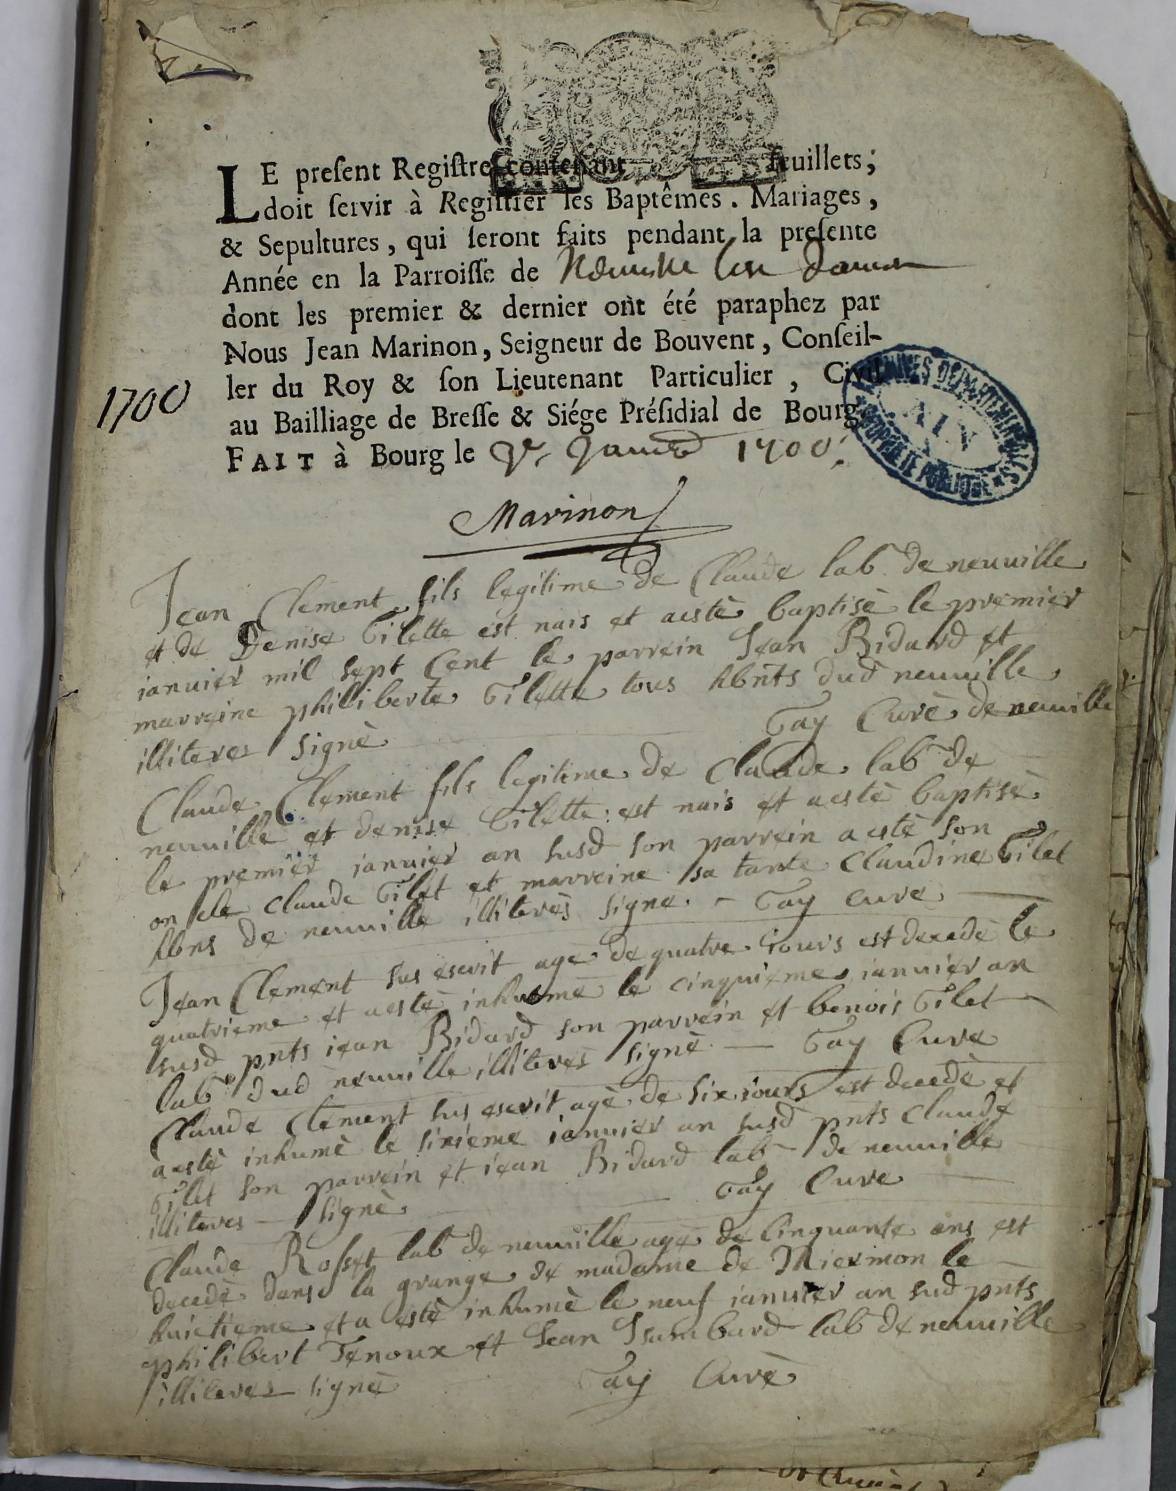 LE preſent Regiſtre contenant feuillets;
doit ſervir à Regiſtrer les Baptêmes. Mariages,
& Sepultures, qui ſeront faits pendant la preſente
Année en la Parroiſſe de Neuville les Dames
dont les premier & dernier ont été paraphez par
Nous Jean Marinon, Seigneur de Bouvent, Conſeil-
ler du Roy & ſon Lieutenant Particulier, Civil
au Bailliage de Breſſe & Siége Préſidial de Bourg
FAIT à Bourg le Janv 1700.
1700
ARCHIVES DEPARTEMENTALES
AIN
PROPRIETE PUBLIQUE
Marinon
Jean Clement fils legitime de Claude lab. de neuville
et de Denise Gilette est nais et aestè baptisè le premier
ianvier mil sept Cent le parrein Jean Bidard et
marreine philiberte Gilette tous hbnts dud neuville
illiteres signè Gay Curè de neuville
Claude Clement fils legitime de Claude lab de
neuville et denise Gilette est nais et aestè baptisè
le premier ianvier an susd son parrein a estè son
oncle Claude Gilet et marreine sa tante Claudine Gilet
hbns de neuville illiterès signè. - Gay Curè
Jean Clement sus escrit agè de quatre iours est decedè le
quatrieme et aestè inhumè le cinquieme ianvier an
susd pnts iean Bidard son parrein et benois Gilet
lab dud neuville illiterès signè - Gay Cure
Claude Clement sus escrit agè de six iours est decedè et
aestè inhumè le sixieme ianvier an susd pnts Claude
Gilet son parrein et iean Bidard lab - de neuville
illiteres - signè Gay Cure
Claude Rosset lab de neuville agè de Cinquante ans est
decedè dans la grange de madame de Miermon le
huictieme et a estè inhumè le neuf ianvier an susd pnts
philibert Tenoux et Jean Isambard lab de neuville
illiteres signè Gay Curè